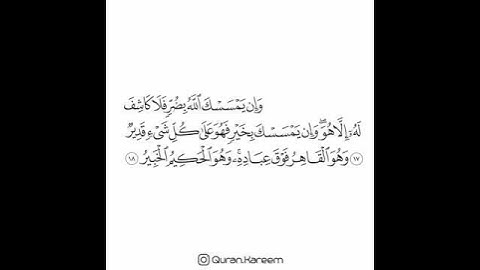 وَإِن يَمْسَسْكَ ٱللَّهُ بِضُرٍّ فَلَا كَاشِفَ
لَهُۥٓ إِلَّا هُوَ ۖ وَإِن يَمْسَسْكَ بِخَيْرٍ فَهُوَ عَلَىٰ كُلِّ شَىْءٍ قَدِيرٌ
١٧ وَهُوَ ٱلْقَاهِرُ فَوْقَ عِبَادِهِۦ ۚ وَهُوَ ٱلْحَكِيمُ ٱلْخَبِيرُ ١٨
Quran.Kareem